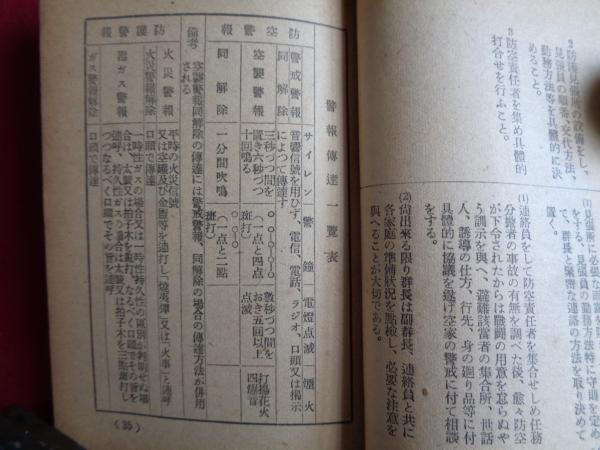 2 防護見張所の設備をし、
見張員の順番、交代方法、
勤務方法等を具體的に決
めること。
3 防空責任者を集め具體的
打合せを行ふこと。
置く。
(1) 連絡員をして防空責任者を集合せしめ任務
分擔者の事故の有無を調べた後、愈々防空
が下令されたからは戰鬪の用意を怠らぬや
う訓示を與へ、避難該當者の集合所、世話
人、誘導の仕方、行先、身の廻り品等に付
具體的に協議を遂げ空家の警戒に付て相談
をする。
(2) 尚出來る限り群長は副群長、連絡員と共に
各家庭の準備狀況を點檢し、必要な注意を
與へることが大切である。
警報傳達一覽表
サイレン
警鐘
電燈点滅
煙火
防空警報
警戒警報
同解除
管警信號を用ひず、電信、電話、ラジオ、口頭又は揭示
によつて傳達す
空襲警報
三秒づつ間を
置き六秒づつ
十回鳴る
(一点と四点
斑打)
數秒づつ間を
おき五回以上
点滅
打揚花火
四傷音
同解除
一分間吹鳴
(一点と二點
斑打)
備考
空襲警報同解除の傳達には警戒警報、同解除の場合の傳達方法が併用
される
防護警報
火災警報
平時の火災信號
又は空罐及び金盥等を連打し「燒夷彈」又は「火事」と連呼
火災警報解除
口頭で傳達
毒ガス警報
一時性ガスの場合又は一時性持久性の區別が判明せぬ場
合は、太鼓又は拍子木を亂打、なるべく口頭でその旨を
連呼、持久性ガスの場合は太鼓又は拍子木を三點斑打し
つつなるべく口頭でその旨を連呼
ガス警報解除
口頭で傳達
(35)